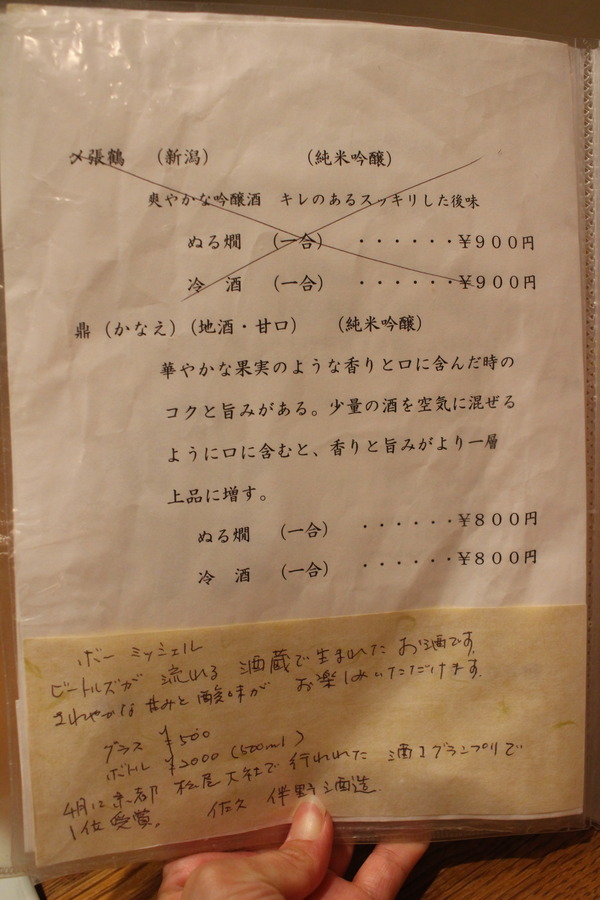 〆張鶴 （新潟） （純米吟醸）
爽やかな吟醸酒 キレのあるスッキリした後味
ぬる燗 （一合） ・・・・・・￥９００円
冷 酒 （一合） ・・・・・・￥９００円
鼎（かなえ）（地酒・甘口） （純米吟醸）
華やかな果実のような香りと口に含んだ時の
コクと旨みがある。少量の酒を空気に混ぜる
ように口に含むと、香りと旨みがより一層
上品に増す。
ぬる燗 （一合） ・・・・・・￥８００円
冷 酒 （一合） ・・・・・・￥８００円
ボー ミッシェル
ビートルズが 流れる 酒蔵で生まれた お酒です。
さわやかな 甘みと 酸味が お楽しみいただけます。
グラス ¥500
ボトル ¥2000（500ml）
4月に京都 松尾大社で 行われた 酒－1グランプリで
1位受賞。 佐久 伴野酒造